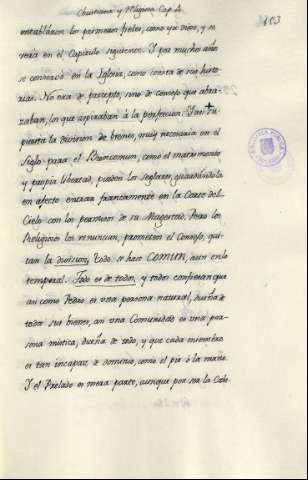 Christiana y Mÿstica Cap. 4
103
entablàron los primeros fieles, como ya dixe, y se
verà en el Capitulo siguiente. Y por muchos años
se conservò en la Iglesia, como consta de sus histo-
rias. No era de precepto, sino de Consejo que abra-
zaban, los que aspiraban à la perfeccion. Y an
puesta la division de bienes, muy necesaria en el
Siglo para el Bien comun, como el matrimonio
y propia libertad, pueden los seglares, guardandola
en efecto entrar francamente en la Corte del
Cielo con los permisos de su Magestad. Pero los
Religiosos los renuncian, prometen el Consejo, qui-
tan la division, Todo se hace COMUN, aun en lo
temporal. Todo es de todos, y todos confiesan que
asi como Pedro es una persona natural, dueña de
todos sus bienes, asi una Comunidad es una per-
sona mistica, dueña de todo, y que cada miembro
es tan incapaz de dominio, como el pie ò la mano.
Y el Prelado es mera parte, aunque por ser la Cabe-